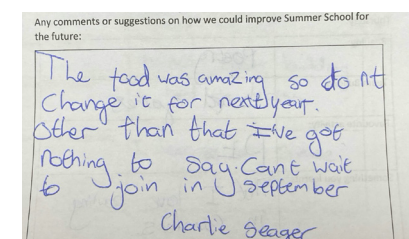 Any comments or suggestions on how we could improve Summer School for
the future:
The food was amazing so do nt
Change it for next year.
Other than that I've got
nothing to say. Cant wait
to join in september
Charlie Seager